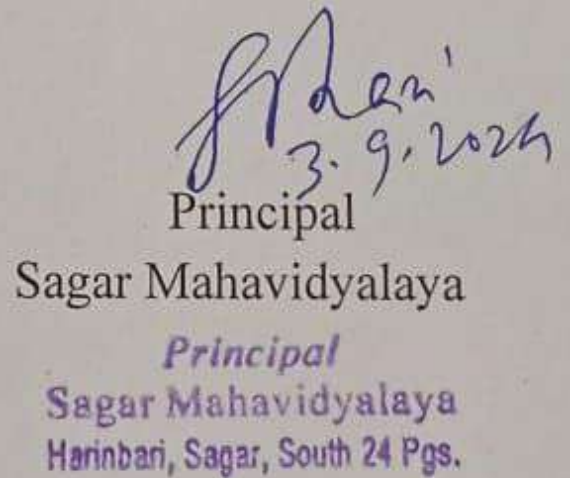 3.9.2024
Principal
Sagar Mahavidyalaya
Principal
Sagar Mahavidyalaya
Harinbari, Sagar, South 24 Pgs.